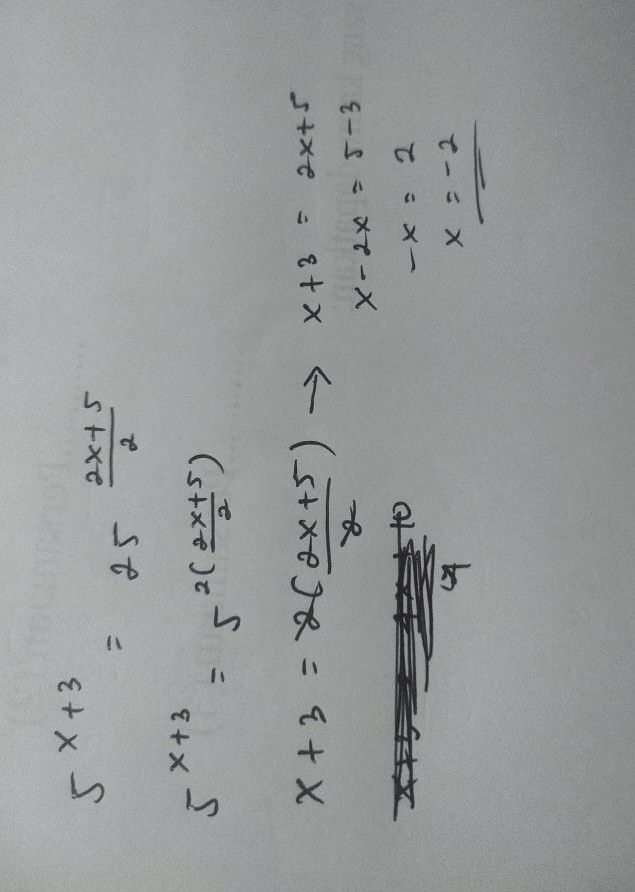 5^(x+3) = 25^((2x+5)/2)
5^(x+3) = 5^(2((2x+5)/2))
x+3 = 2((2x+5)/2) → x+3 = 2x+5
x-2x = 5-3
-x = 2
x = -2